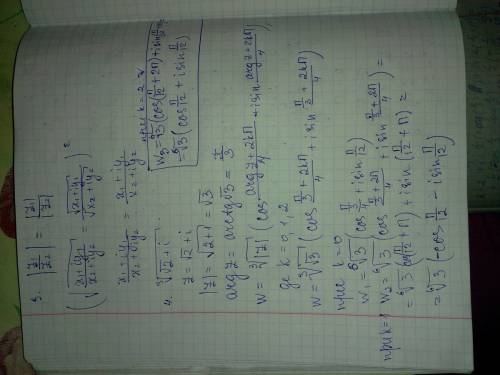 3. |z₁/z₂| = |z₁|/|z₂|
(√(x₁+iy₁)/√(x₂+iy₂) = √(x₁+iy₁)/√(x₂+iy₂))²
(x₁+iy₁)/(x₂+iy₂) = (x₁+iy₁)/(x₂+iy₂)
4. ³√(√2+i)
z = √2+i
|z| = √(2+1) = √3
arg z = arctg √3 = π/3
w = ³√|z| (cos (arg z + 2kπ)/4 + i sin (arg z + 2kπ)/4)
де k = 0, 1, 2
w = ³√√3 (cos (π/3 + 2kπ)/4 + i sin (π/3 + 2kπ)/4)
при k=0
w₁ = ⁶√3 (cos π/4 + i sin π/12)
при k=1 w₂ = ⁶√3 (cos (π/3 + 2π)/4 + i sin (π/3 + 2π)/4) =
= ⁶√3 (cos(π/12 + π) + i sin(π/12 + π)) =
= ⁶√3 (-cos π/12 - i sin π/12)
при k=2
w₃ = ⁶√3 (cos(π/12 + 2π) + i sin
= ⁶√3 (cos π/12 + i sin π/12)